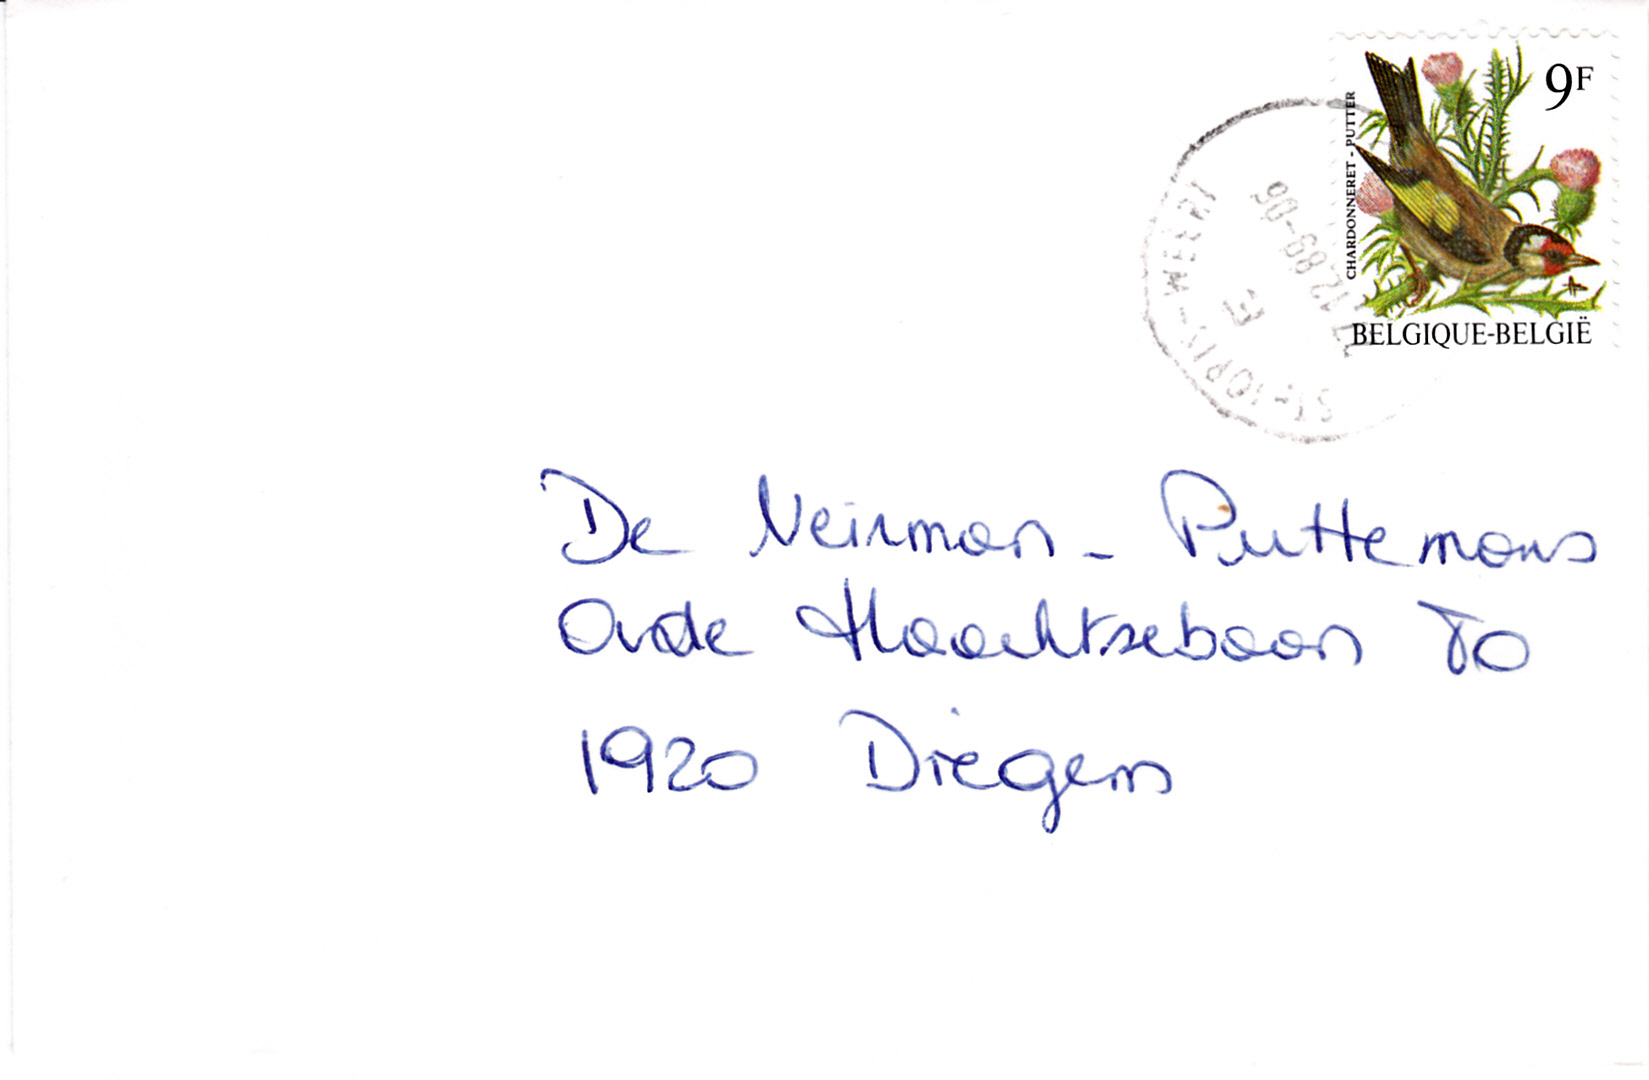 9F
CHARDONNERET - PUTTER
BELGIQUE-BELGIË
ST-JORIS-WEERT
E
12.89-06
De Neirman - Puttemans
Oude Haachtsebaan 80
1920 Diegem